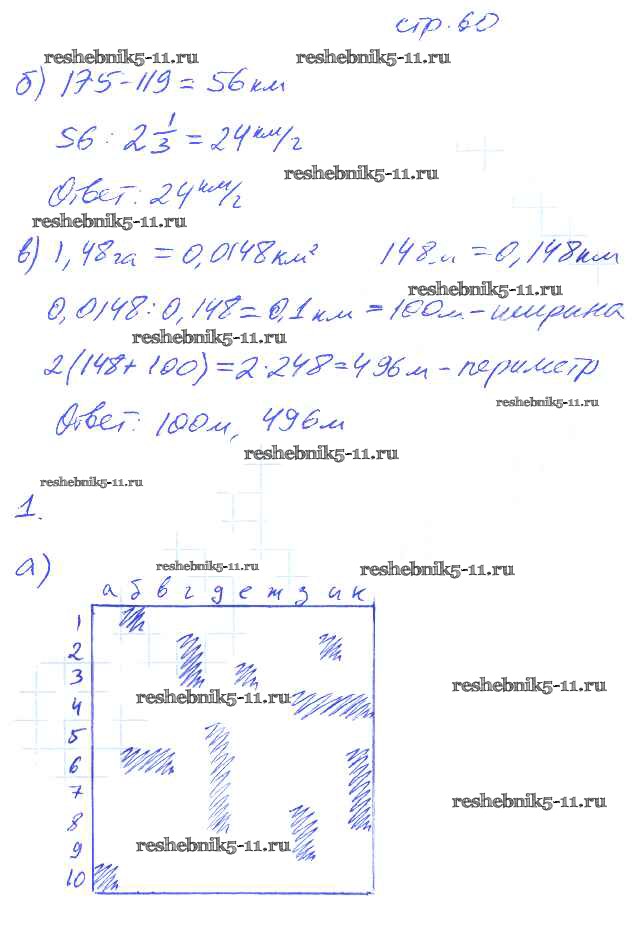 стр. 60
reshebnik5-11.ru reshebnik5-11.ru
б) 175-119 = 56 км
56 : 2 1/3 = 24 км/г
reshebnik5-11.ru
Ответ: 24 км/г
reshebnik5-11.ru
в) 1,48 га = 0,0148 км² 148 м = 0,148 км
reshebnik5-11.ru
0,0148 : 0,148 = 0,1 км = 100 м - ширина
reshebnik5-11.ru
2(148+100) = 2·248 = 496 м - периметр
reshebnik5-11.ru
Ответ: 100 м, 496 м
reshebnik5-11.ru
reshebnik5-11.ru
1.
reshebnik5-11.ru reshebnik5-11.ru
а)
а б в г д е ж з и к
1
2
3
reshebnik5-11.ru reshebnik5-11.ru
4
5
6
7
reshebnik5-11.ru
8
reshebnik5-11.ru
9
10